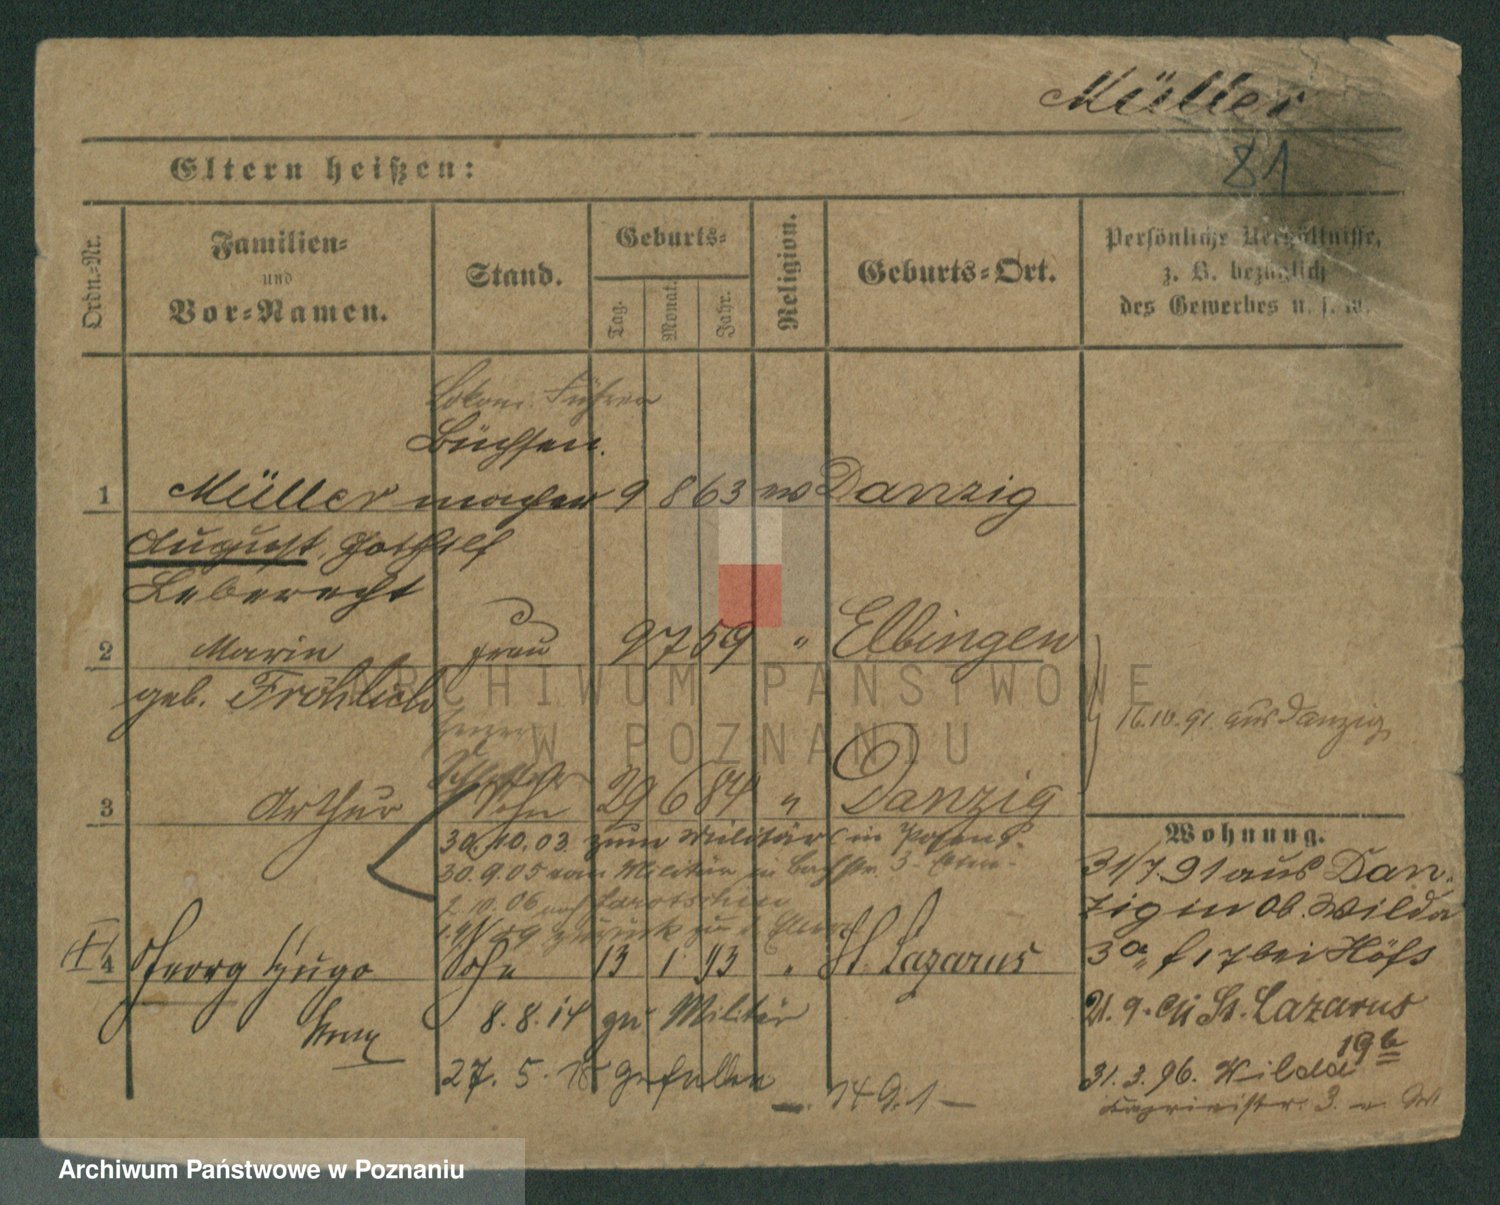 Müller
81
Eltern heißen:
Ordn.-Nr. Familien- und Vor-Namen. Stand. Geburts- Tag. Monat. Jahr. Religion. Geburts-Ort. Persönliche Verhältnisse, z. B. bezüglich des Gewerbes u. s. w.
Lokom. Führer
Büchsen
1 Müller macher 9 8 63 ev Danzig
August Gotthilf
Leberecht
2 Marie Frau 9 7 59 " Elbingen
geb. Fröhlich
16.10.91. aus Danzig
Schlosser
3 Arthur Sohn 29 6 84 " Danzig
30.10.03. zum Militär in Posen
30.9.05 vom Militär in
10.06 nach Jarotschin
09 zurück zu
4 Georg Hugo Sohn 13 1 93 " St. Lazarus
8.8.14 zu Militär
27.5.18 gefallen
Wohnung.
31/7.91 aus Dan-
zig in Ob. Wilda
3a f 17 bei Höfs
21.9. St. Lazarus
19b
31.3.96. Wilda
3.
ARCHIWUM PAŃSTWOWE
W POZNANIU
Archiwum Państwowe w Poznaniu